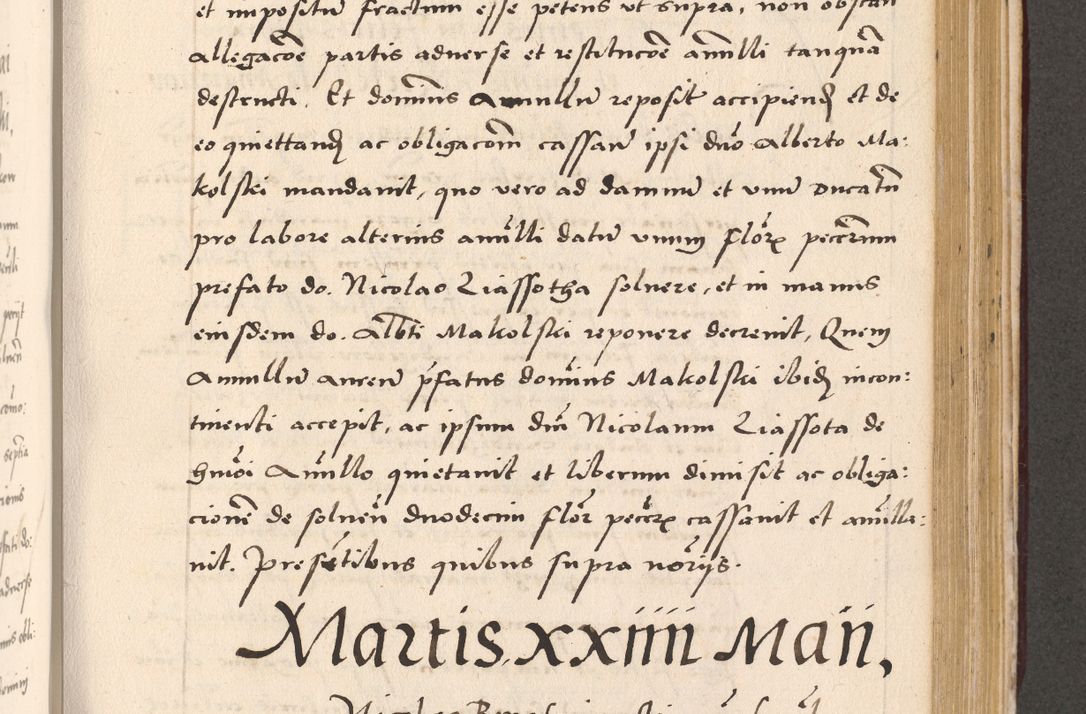 et impositum fractum esse petens ut supra, non obstan
allegacõe partis adverse et restitucõe anulli tanquã
destructi. Et dominus Anullũ reposit accipiend et de
eo quiettand ac obligacõm cassarẽ ipsi dño Alberto Ma:
kolski mandavit, quo vero ad damnũ et unũ ducatũ
pro labore alterius anulli datũ unum florx peccrum
prefato do. Nicolao Liassotha solvere, et in manus
eiusdem do. Albti Makolski reponere decrevit, Quem
Anullũ aureũ pfatus dominus Makolski ibid incon:
tinenti accepit, ac ipsum dm Nicolaum Liassota de
hmõi Anullo quietavit et liberum dimisit ac obliga:
cionẽ de solven duodecim flor peccrx cassavit et anulla:
vit. Presẽtibus quibus supra norijs.
Martis xxiiii Maii,